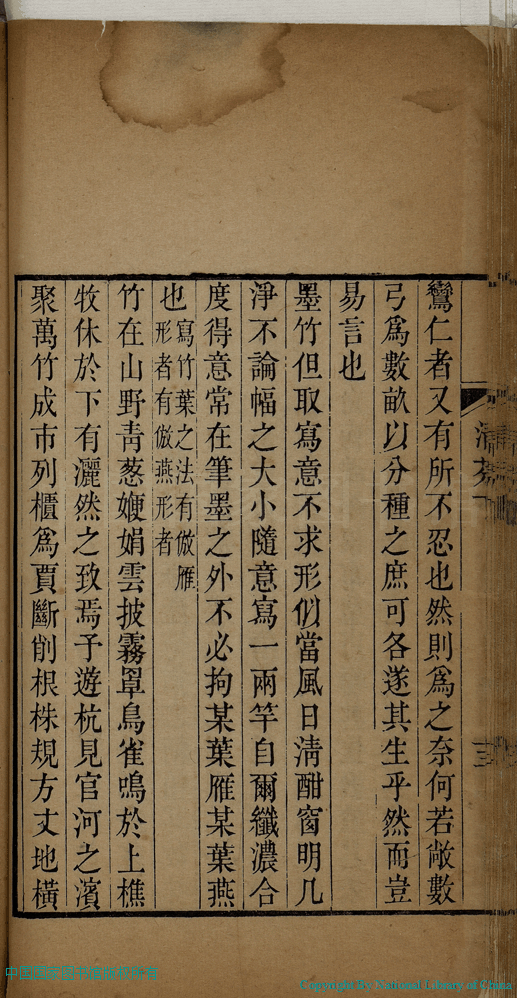 鸞仁者又有所不忍也然則爲之奈何若敞數
弓爲數畝以分種之庶可各遂其生乎然而豈
易言也
墨竹但取寫意不求形似當風日淸酣窗明几
淨不論幅之大小隨意寫一兩竿自爾纖濃合
度得意常在筆墨之外不必拘某葉雁某葉燕
也寫竹葉之法有倣雁
形者有倣燕形者
竹在山野靑葱㛐娟雲披霧罩鳥雀鳴於上樵
牧休於下有灑然之致焉予遊杭見官河之濱
聚萬竹成市列櫃爲賈斷削根株規方丈地橫
Copyright By National Library of China